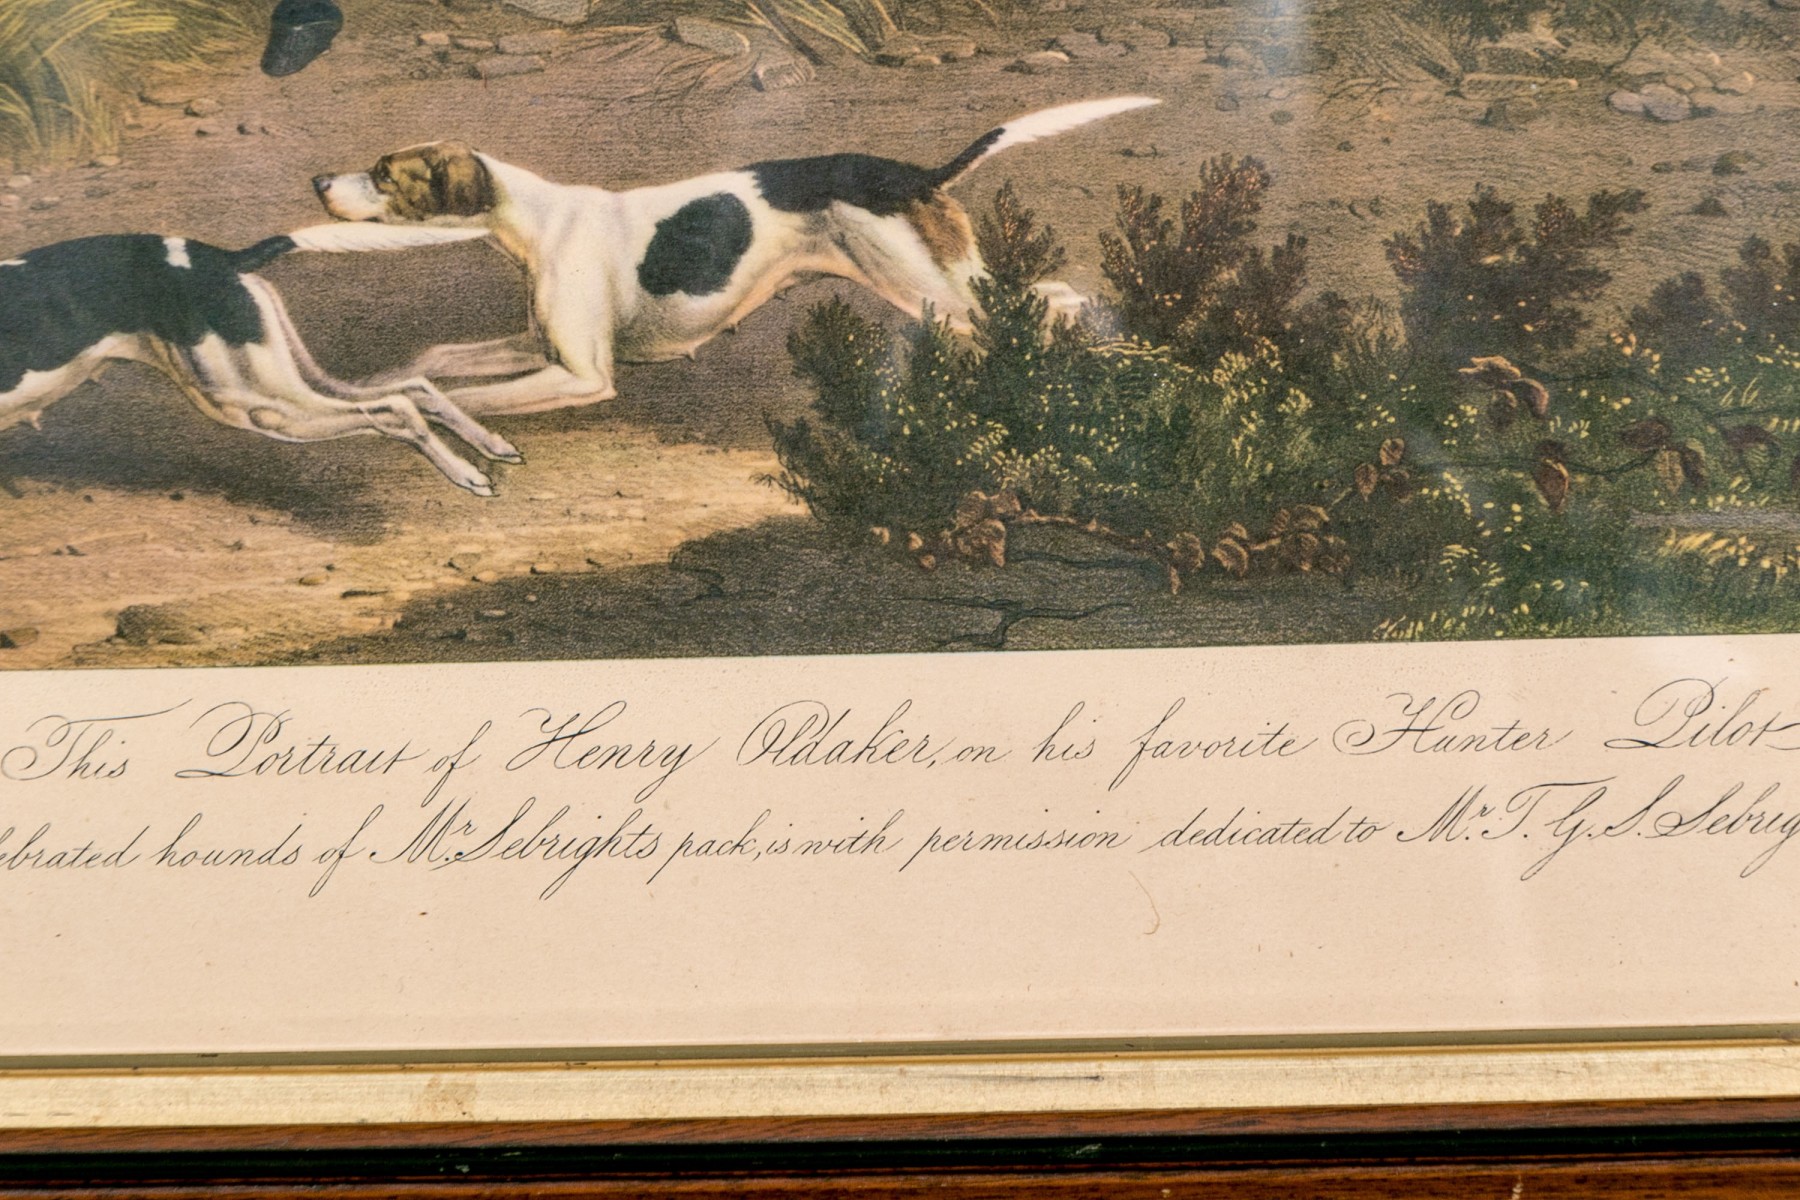 This Portrait of Henry Oldaker, on his favorite Hunter Pilot
ebrated hounds of Mr. Sebrights pack, is with permission dedicated to Mr. T. G. S. Sebrig